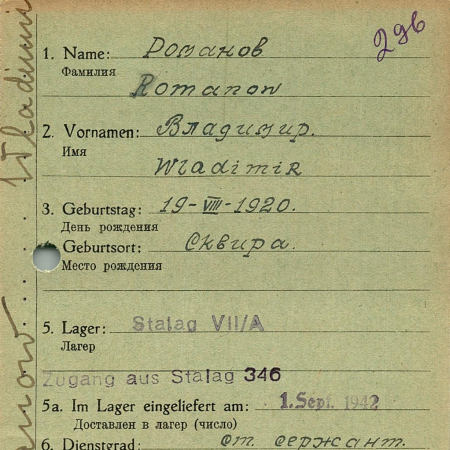 296
1. Name: Романов
Фамилия
Romanow
2. Vornamen: Владимир.
Имя
Wladimir
3. Geburtstag: 19-VIII-1920.
День рождения
Geburtsort: Сквира.
Место рождения
5. Lager: Stalag VII/A
Лагерь
Zugang aus Stalag 346
5a. Im Lager eingeliefert am: 1. Sept. 1942
Доставлен в лагерь (число)
6. Dienstgrad: ст. сержант.
Wladimir